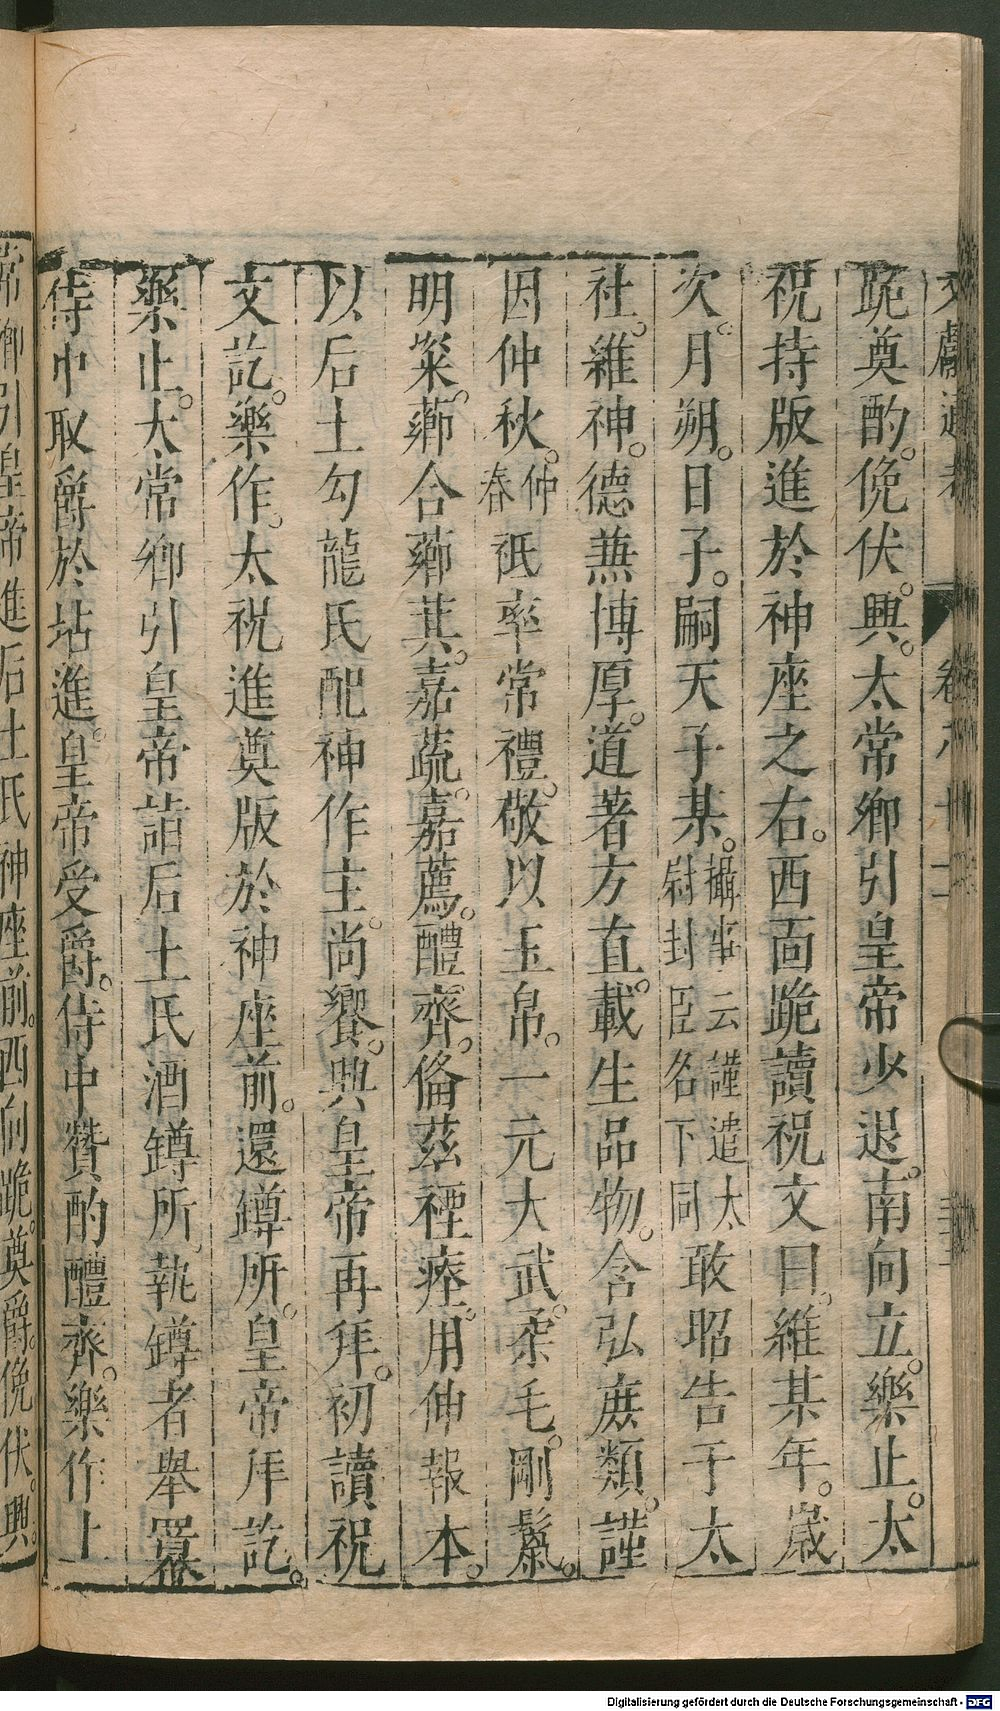 跪奠酌。俛伏。興。太常卿引皇帝少退。南向立。樂止。太
祝持版進於神座之右。西面跪讀祝文曰。維某年。歲
次。月朔。日子。嗣天子某。攝事云謹遣太尉封臣名下同敢昭告于太
社。維神。德兼博厚。道著方直。載生品物。含弘庶類。謹
因仲秋。仲春祗率常禮。敬以玉帛。一元大武。柔毛。剛鬛。
明粢。薌合薌萁。嘉蔬。嘉薦。醴齊。俻茲禋瘞。用伸報本。
以后土勾龍氏配神作主。尚饗。興皇帝再拜。初讀祝
文訖。樂作。太祝進奠版於神座前。還罇所。皇帝拜訖。
樂止。太常卿引皇帝詣后土氏酒罇所。執罇者舉羃
侍中取爵於坫進。皇帝受爵。侍中贊酌醴齊。樂作上
常卿引皇帝進后土氏神座前。西向跪。奠爵。俛伏。興。
Digitalisierung gefördert durch die Deutsche Forschungsgemeinschaft - DFG